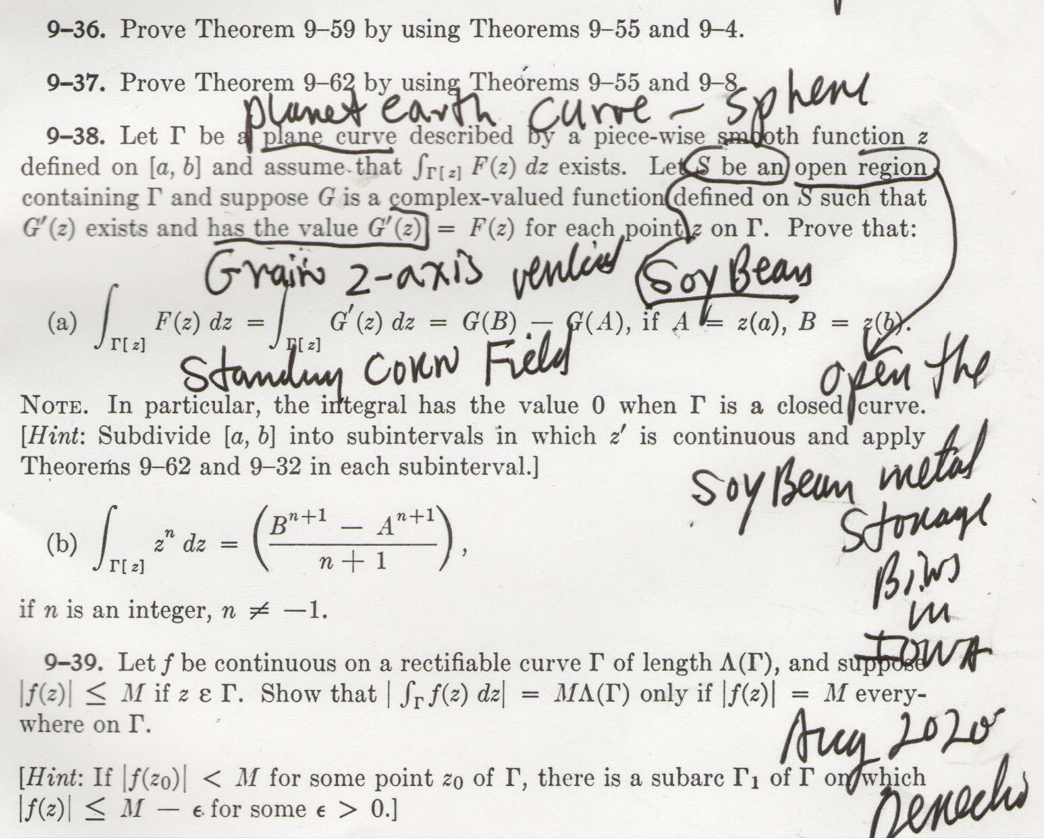 9–36. Prove Theorem 9–59 by using Theorems 9–55 and 9–4.
9–37. Prove Theorem 9–62 by using Theorems 9–55 and 9–8.
planet earth curve – sphere
9–38. Let Γ be a plane curve described by a piece-wise smooth function z
defined on [a, b] and assume that ∫Γ[z] F(z) dz exists. Let S be an open region
containing Γ and suppose G is a complex-valued function defined on S such that
G′(z) exists and has the value G′(z) = F(z) for each point z on Γ. Prove that:
Grain z-axis vertical SoyBean
(a) ∫Γ[z] F(z) dz = ∫Γ[z] G′(z) dz = G(B) – G(A), if A = z(a), B = z(b).
Standing CORN Field
open the
NOTE. In particular, the integral has the value 0 when Γ is a closed curve.
[Hint: Subdivide [a, b] into subintervals in which z′ is continuous and apply
Theorems 9–62 and 9–32 in each subinterval.]
SoyBean metal
Storage
Bins
in
IOWA
(b) ∫Γ[z] zⁿ dz = ((Bⁿ⁺¹ – Aⁿ⁺¹)/(n + 1)),
if n is an integer, n ≠ –1.
9–39. Let f be continuous on a rectifiable curve Γ of length Λ(Γ), and suppose
|f(z)| ≤ M if z ε Γ. Show that | ∫Γ f(z) dz| = MΛ(Γ) only if |f(z)| = M every-
where on Γ.
Aug 2020
Derecho
[Hint: If |f(z₀)| < M for some point z₀ of Γ, there is a subarc Γ₁ of Γ on which
|f(z)| ≤ M – ϵ for some ϵ > 0.]